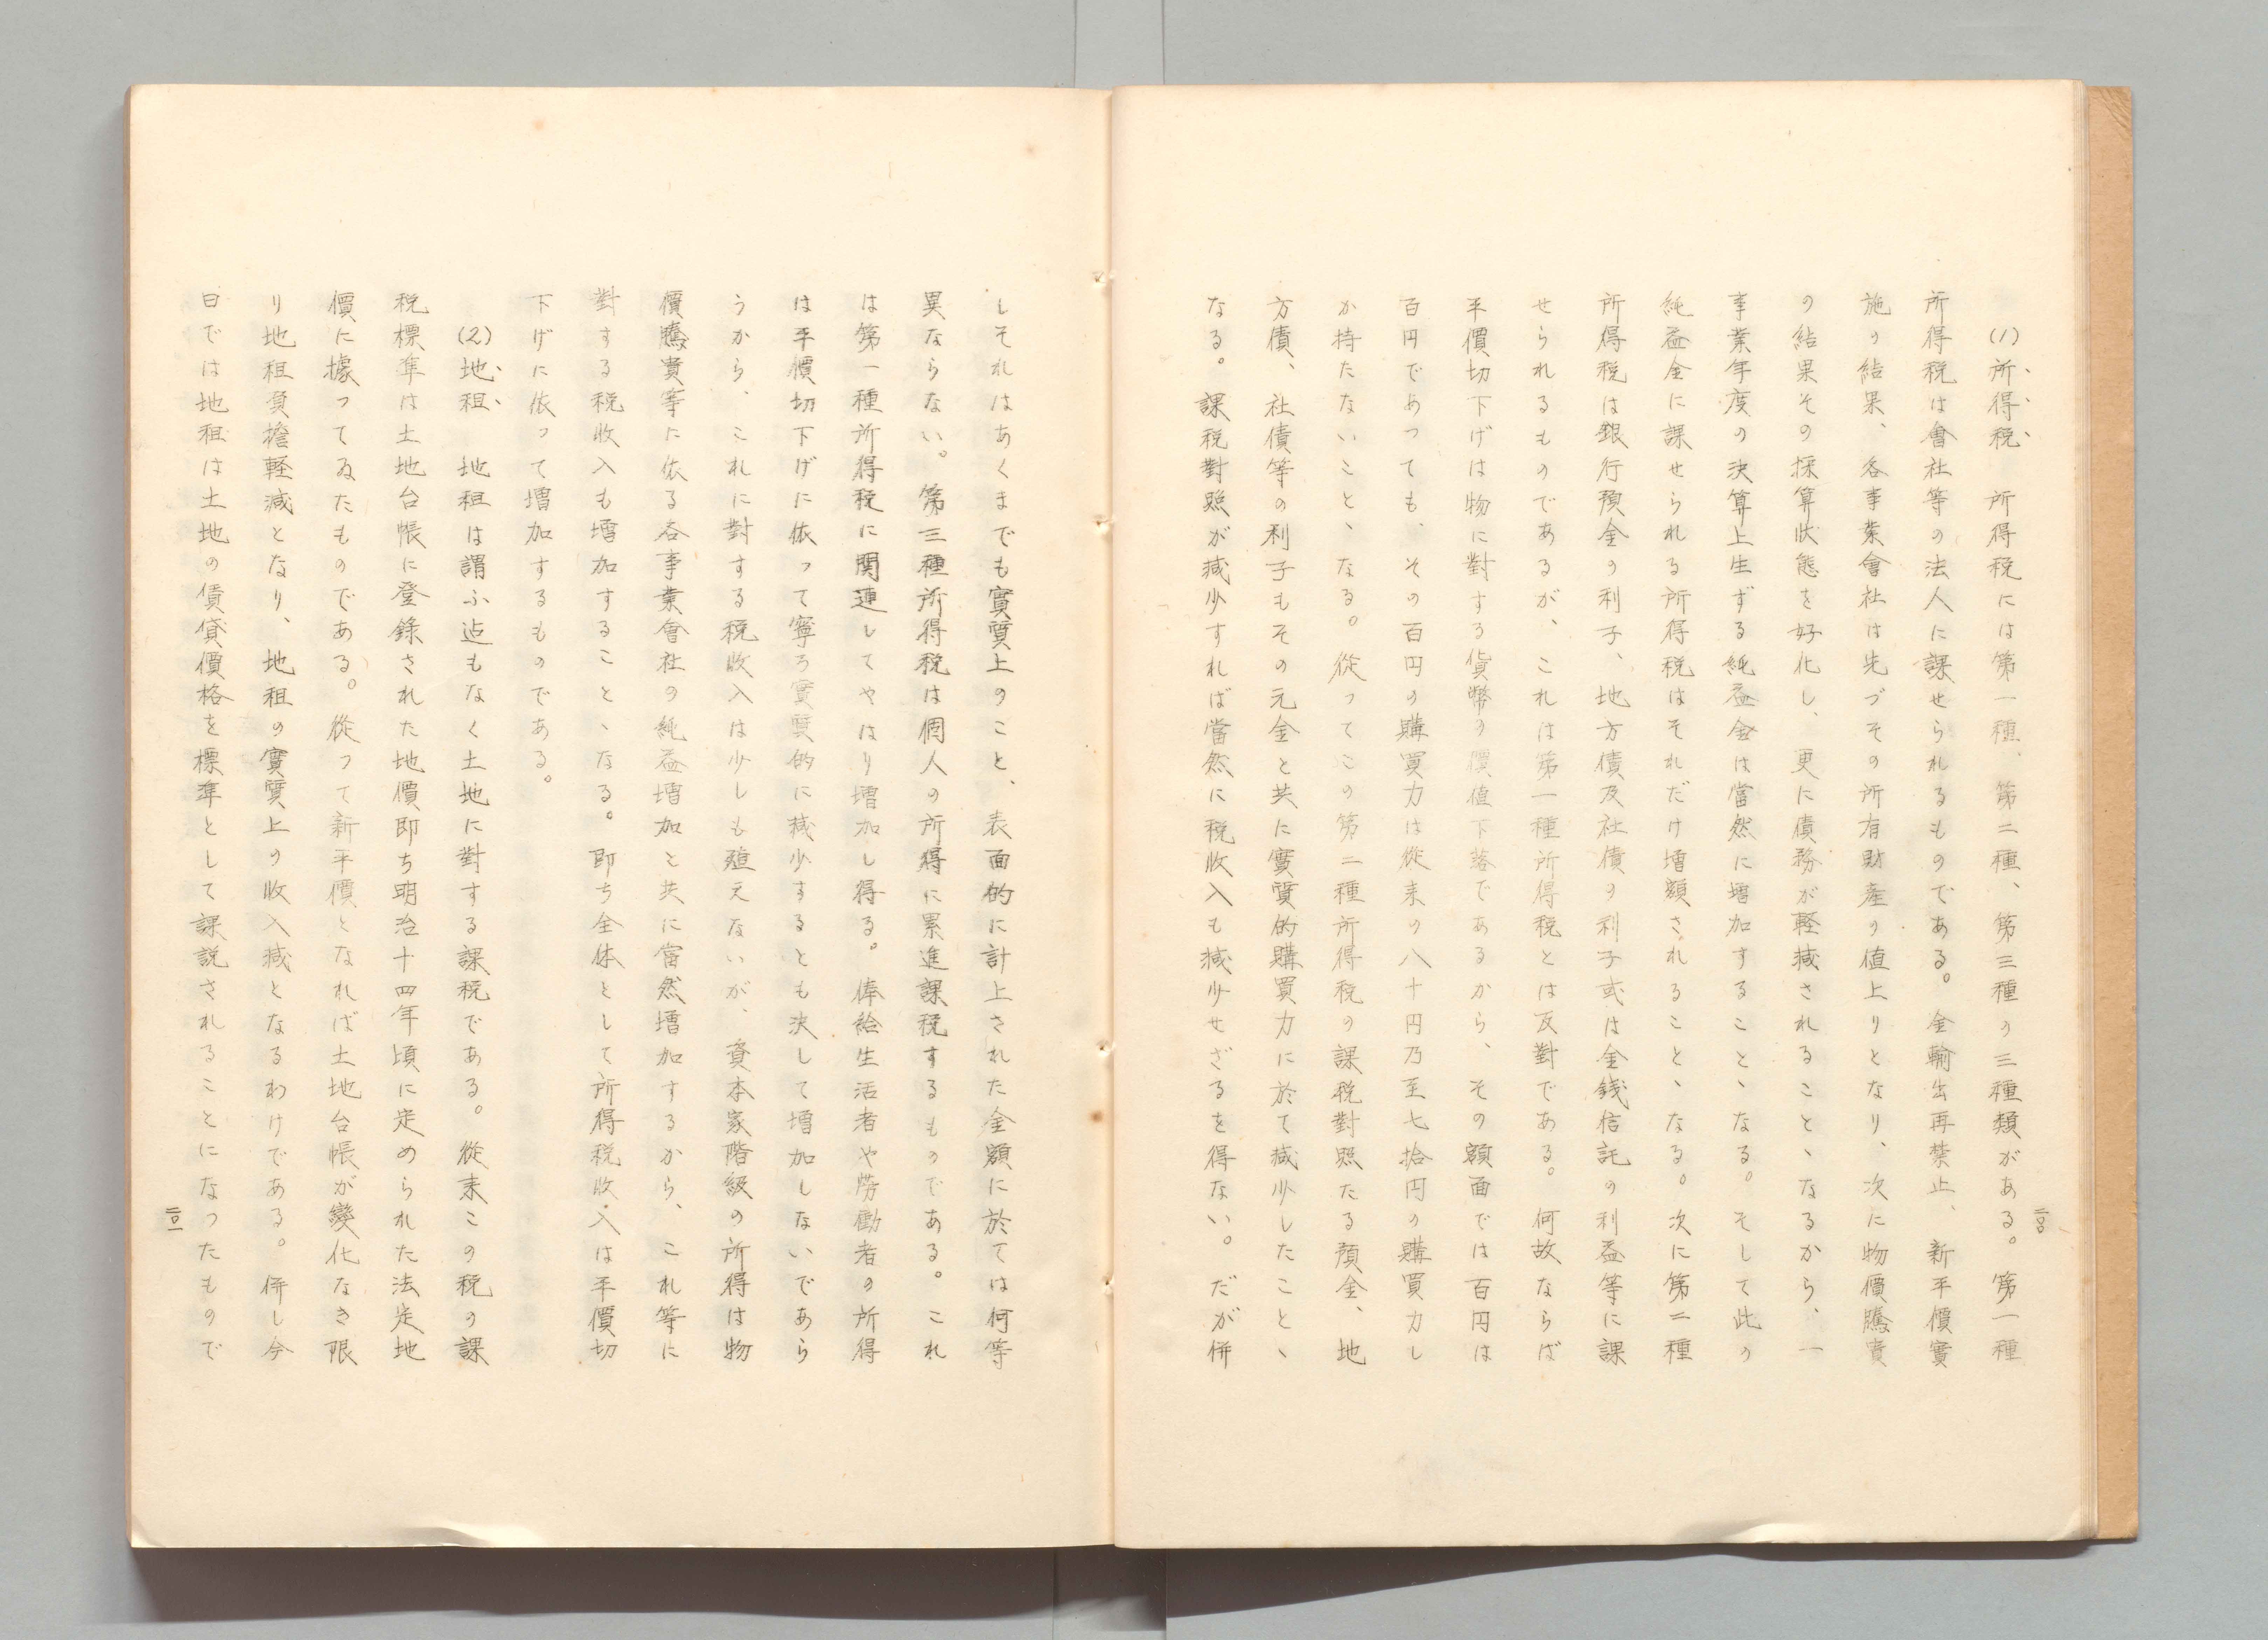 (1)所得税　所得税には第一種、第二種、第三種の三種類がある。第一種
所得税は會社等の法人に課せられるものである。金輸出再禁止、新平價實
施の結果、各事業會社は先づその所有財産の値上りとなり、次に物價騰貴
の結果その採算狀態を好化し、更に債務が軽減されることゝなるから、一
事業年度の決算上生ずる純益金は當然に増加することゝなる。そして此の
純益金に課せられる所得税はそれだけ増額されることゝなる。次に第二種
所得税は銀行預金の利子、地方債及社債の利子或は金銭信託の利益等に課
せられるものであるが、これは第一種所得税とは反對である。何故ならば
平價切下げは物に對する貨幣の價値下落であるから、その額面では百円は
百円であつても、その百円の購買力は從来の八十円乃至七拾円の購買力し
か持たないことゝなる。從つてこの第二種所得税の課税對照たる預金、地
方債、社債等の利子もその元金と共に實質的購買力に於て減少したことゝ
なる。課税對照が減少すれば當然に税收入も減少せざるを得ない。だが併
二〇
しそれはあくまでも實質上のこと、表面的に計上された金額に於ては何等
異ならない。第三種所得税は個人の所得に累進課税するものである。これ
は第一種所得税に関連してやはり増加し得る。俸給生活者や労働者の所得
は平價切下げに依つて寧ろ實質的に減少するとも決して増加しないであら
うから、これに對する税收入は少しも殖えないが、資本家階級の所得は物
價騰貴等に依る各事業會社の純益増加と共に當然増加するから、これ等に
對する税收入も増加することゝなる。即ち全体として所得税收入は平價切
下げに依つて増加するものである。
(2)地租　地租は謂ふ迄もなく土地に對する課税である。從来この税の課
税標準は土地台帳に登錄された地價即ち明治十四年頃に定められた法定地
價に據つてゐたものである。從つて新平價となれば土地台帳が變化なき限
り地租負擔軽減となり、地租の實質上の收入減となるわけである。併し今
日では地租は土地の賃貸價格を標準として課説されることになつたもので
二一